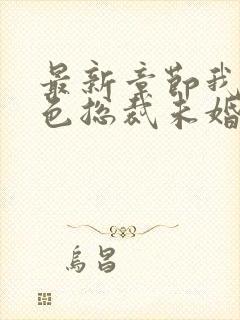 最新章节我
色总裁未婚
乌昌